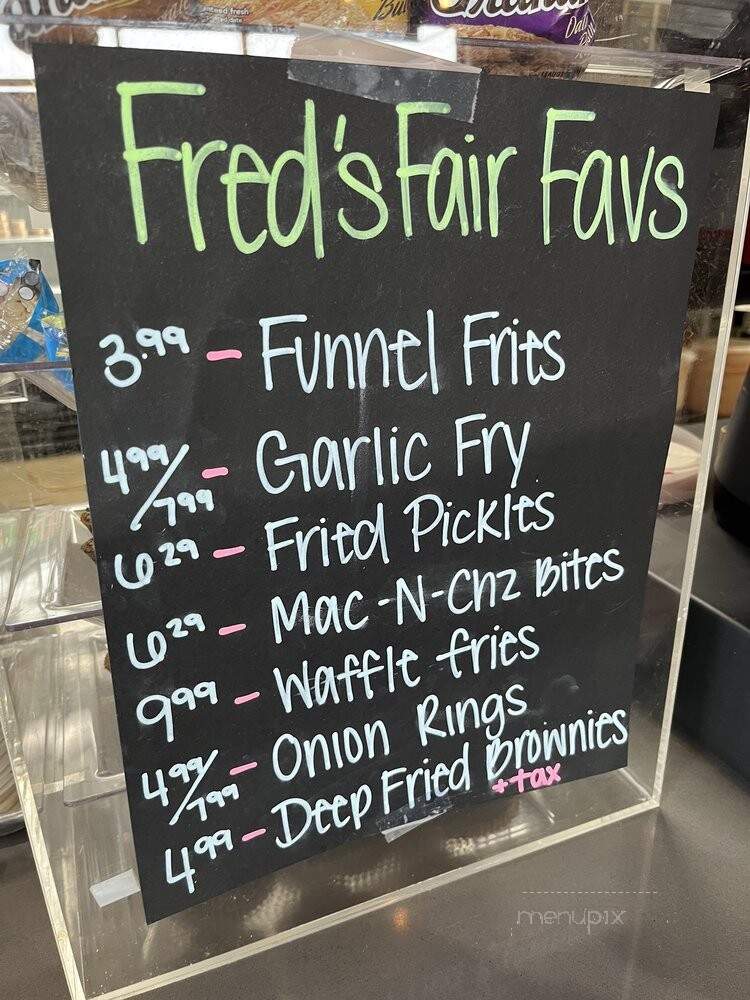 Fred's Fair Favs
3.99 - Funnel Fries
4.99/7.99 - Garlic Fry
6.29 - Fried Pickles
6.29 - Mac-N-Chz Bites
9.99 - Waffle fries
4.99/7.99 - Onion Rings
4.99 - Deep Fried Brownies
+tax
menupix